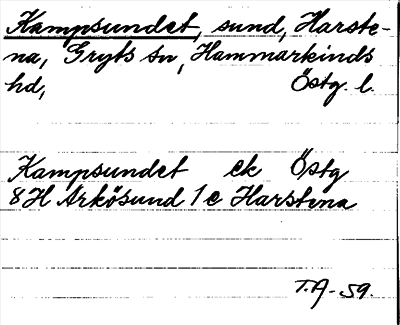 Kampsundet, sund, Harste-
na, Gryts sn, Hammarkinds
hd, Östg. l.
Kampsundet ek Östg
8H Arkösund 1e Harstena
T.A-59.